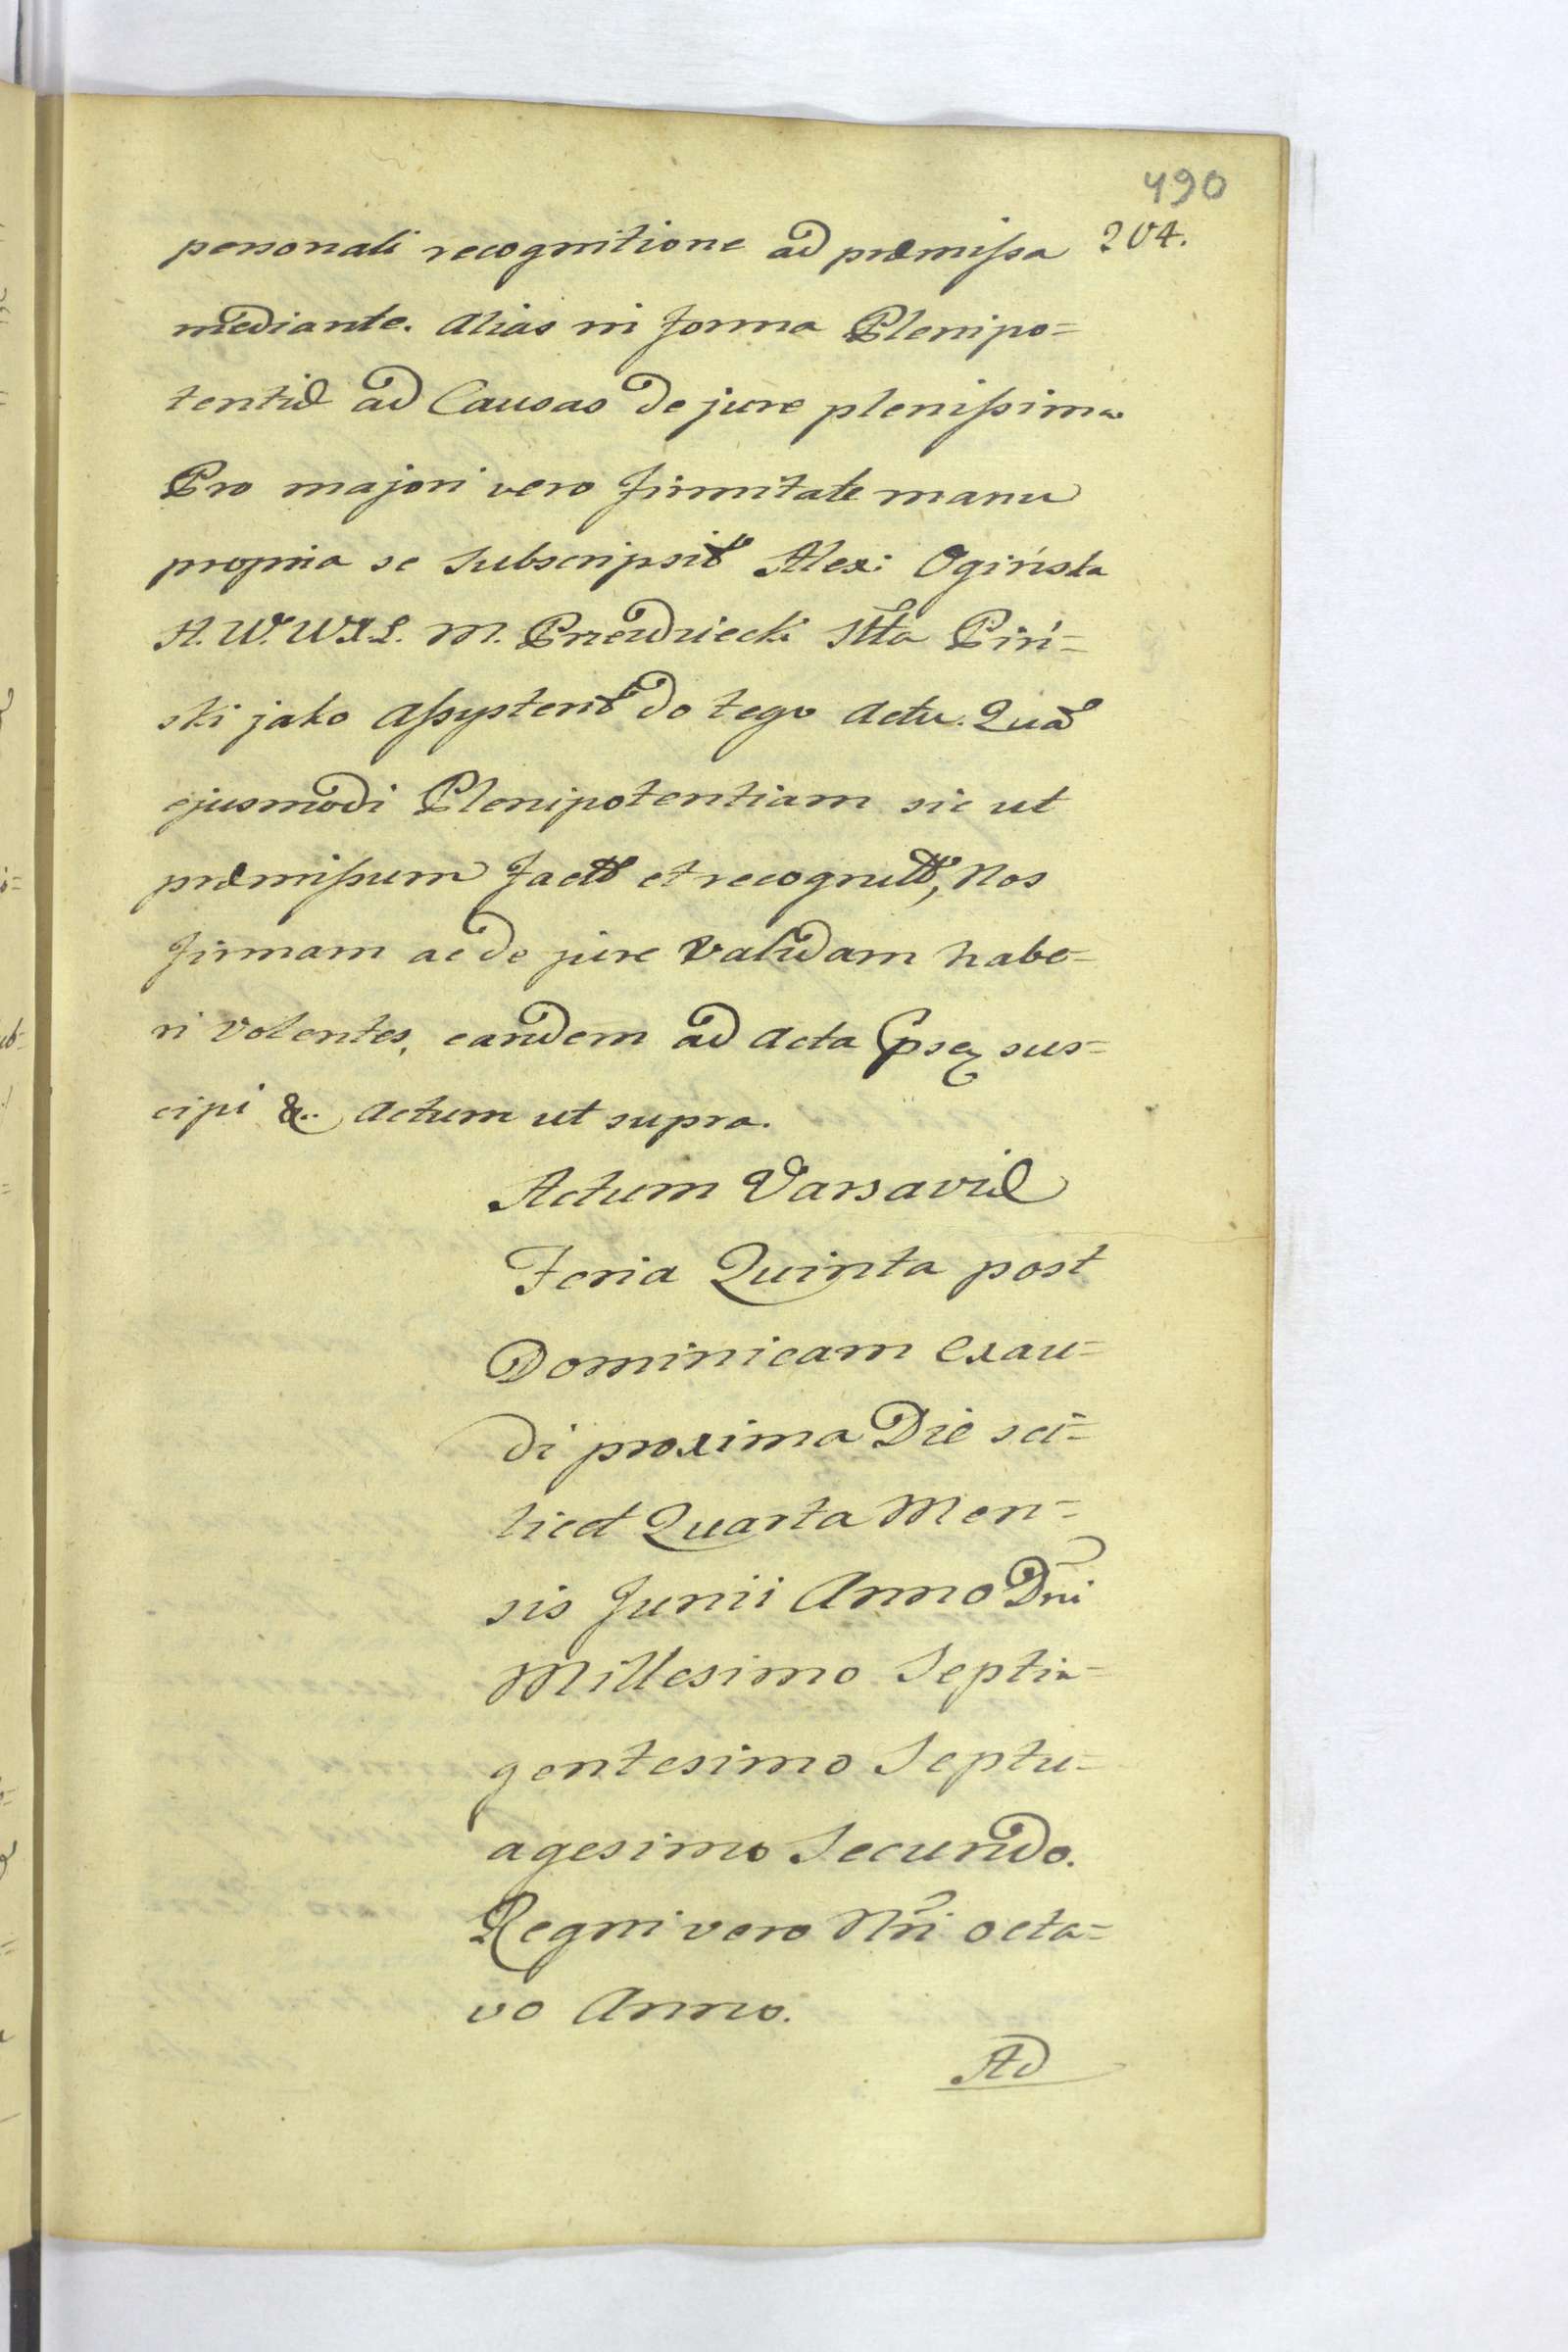 490
204.
personali recognitione ad præmissa
mediante. Alias in forma Plenipo=
tentiæ ad Causas de jure plenissima
Pro majori vero firmitate manu
propria se subscripsit Alex: Ogińska
H. W. W. X. L. M. Przezdziecki Stta Piń=
ski jako assystent do tego Actu. Quã
ejusmodi Plenipotentiam sic ut
præmissum factã et recognitã, Nos
firmam ac de jure validam habe=
ri volentes, eandem ad Acta sus=
cipi &.. Actum ut supra.
Actum Varsaviæ
Feria Quinta post
Dominicam Exau=
di proxima Die sci=
licet Quarta Men=
sis Junii Anno Dni
Millesimo Septin=
gentesimo Septu=
agesimo Secundo.
Regni vero Nri octa=
vo Anno.
Ad